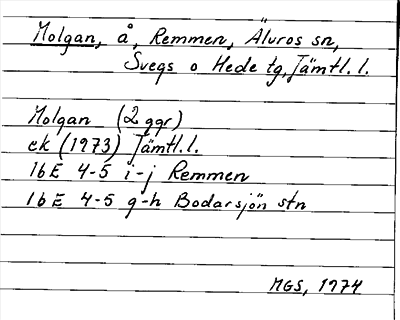 Molgan, å, Remmen, Älvros sn,
Svegs o Hede tg, Jämtl. l.
Molgan (2 ggr)
ek (1973) Jämtl. l.
16E 4-5 i-j Remmen
16E 4-5 g-h Bodarsjön stn
MGS, 1974